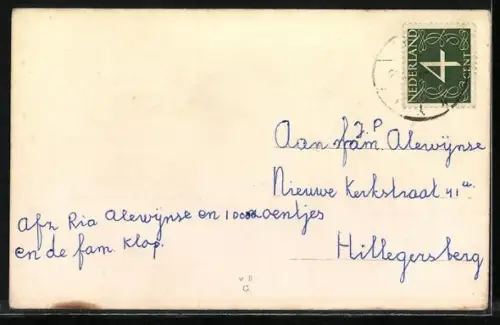 NEDERLAND
4
CENT
J.P
Aan fam. Alewijnse
Nieuwe Kerkstraat 41a
Hillegersberg
Afz Ria Alewijnse en 10000oentjes
en de fam. Klop.